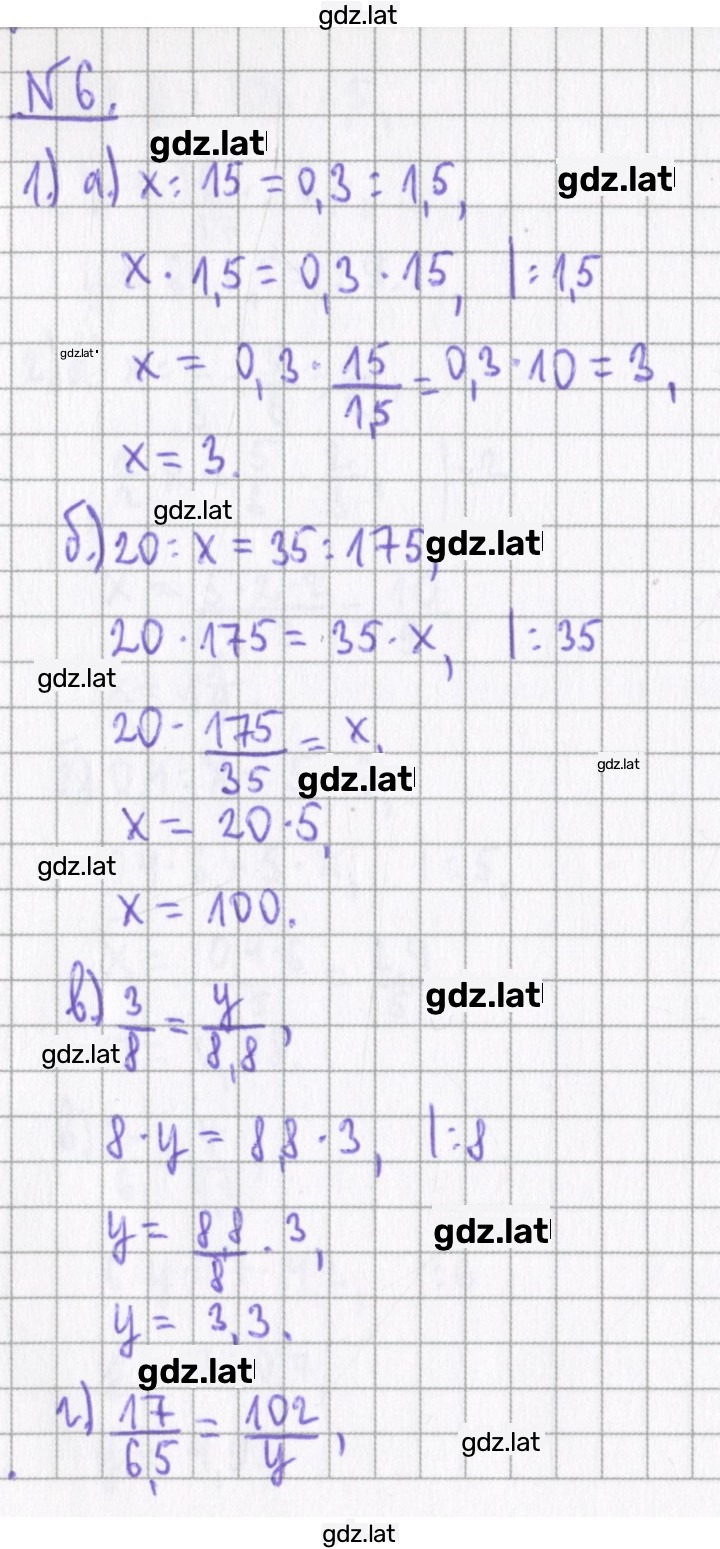 gdz.lat
N 6.
gdz.lat
1.) а.) x : 15 = 0,3 : 1,5,
gdz.lat
x · 1,5 = 0,3 · 15, | : 1,5
gdz.lat
x = 0,3 · 15/1,5 = 0,3 · 10 = 3,
x = 3.
gdz.lat
б.) 20 : x = 35 : 175,
gdz.lat
20 · 175 = 35 · x, | : 35
gdz.lat
20 · 175/35 = x,
gdz.lat
gdz.lat
x = 20 · 5,
gdz.lat
x = 100.
в.) 3/8 = y/8,8,
gdz.lat
gdz.lat
8 · y = 8,8 · 3, | : 8
y = 8,8/8 · 3,
gdz.lat
y = 3,3.
gdz.lat
г.) 17/6,5 = 102/y,
gdz.lat
gdz.lat